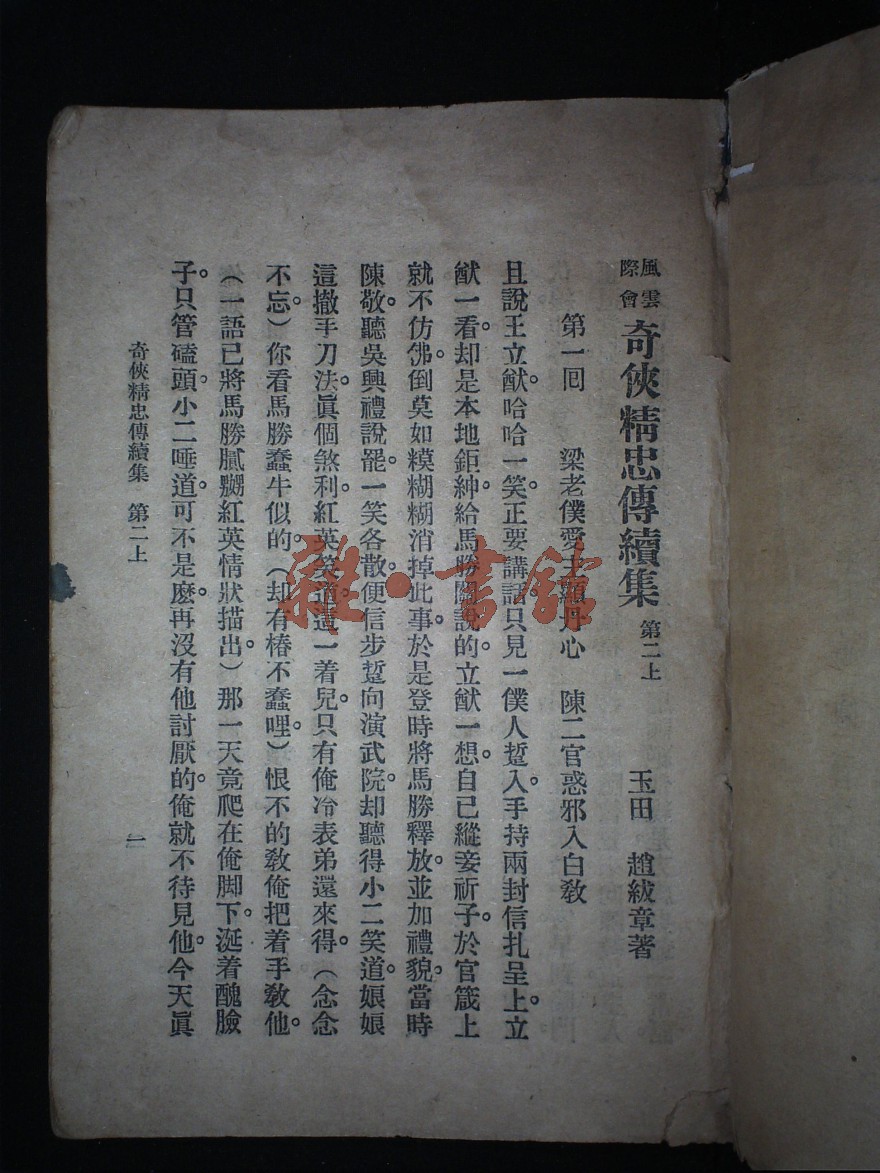 風雲際會 奇俠精忠傳續集 第二上 玉田 趙紱章著
第一囘 梁老僕愛主顯丹心 陳二官惑邪入白敎
且說王立猷哈哈一笑。正要講話。只見一僕人踅入。手持兩封信扎呈上。立
猷一看。却是本地鉅紳給馬勝關說的。立猷一想。自己縱妾祈子。於官箴上
就不仿佛。倒莫如糢糊糊消掉此事。於是登時將馬勝釋放。並加禮貌。當時
陳敬聽吳興禮說罷。一笑各散。便信步踅向演武院。却聽得小二笑道。娘娘
這撤手刀法。眞個煞利。紅英笑道。這一着兒。只有俺冷表弟還來得。（念念
不忘。）你看馬勝蠢牛似的。（却有椿不蠢哩。）恨不的敎俺把着手敎他。
（一語已將馬勝膩嬲紅英情狀描出。）那一天竟爬在俺脚下。涎着醜臉
子。只管磕頭。小二唾道。可不是麽。再沒有他討厭的。俺就不待見他。今天眞
奇俠精忠傳續集 第二上
一
雜·書館